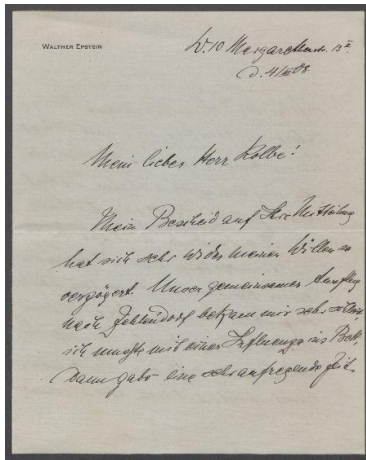 WALTHER EPSTEIN
W. 10 Margarethenstr. 13 II
d. 4/XII 08.
Mein lieber Herr Kolbe!
Mein Bescheid auf Ihre Mitteilung
hat sich sehr wider meinen Willen so
verzögert. Unser gemeinsamer Ausflug
nach Zehlendorf bekam mir sehr schlecht,
ich mußte mit einer Influenza ins Bett,
dann gabs eine sehr aufregende Zeit.